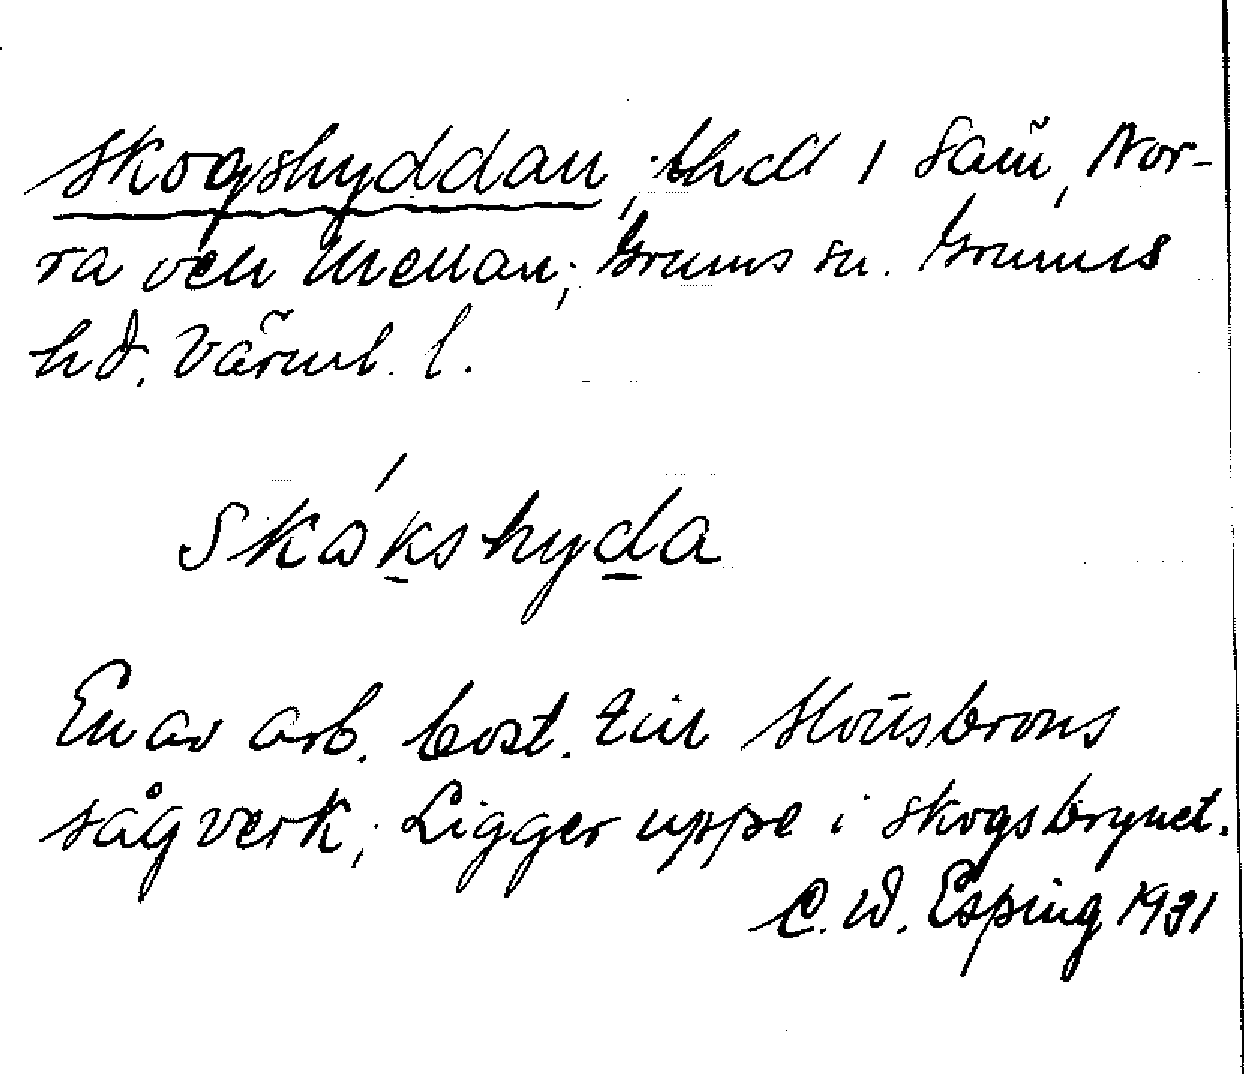 Skogshyddan, bhdl 1 Sam, Nor-
ra och Mellan; Grums sn. Grums
hd. Värml. l.
Skɷ́kshyda
En av arb. bost. till Slottsbrons
sågverk; Ligger uppe i skogsbrynet.
C. W. Esping 1931